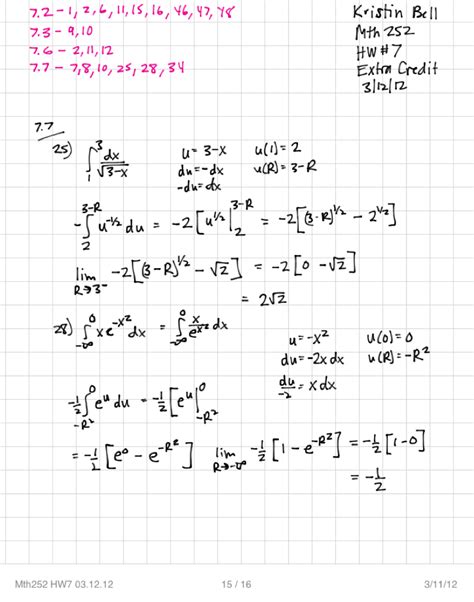 7.2 - 1, 2, 6, 11, 15, 16, 46, 47, 48
7.3 - 9, 10
7.6 - 2, 11, 12
7.7 - 7, 8, 10, 25, 28, 34
Kristin Bell
Mth 252
HW #7
Extra Credit
3/12/12
7.7
25) ∫₁³ dx/√(3-x) u = 3-x u(1) = 2
du = -dx u(R) = 3-R
-du = dx
-∫₂^(3-R) u^(-1/2) du = -2[u^(1/2)|₂^(3-R) = -2[(3-R)^(1/2) - 2^(1/2)]
lim R→3⁻ -2[(3-R)^(1/2) - √2] = -2[0 - √2]
= 2√2
28) ∫_(-∞)^0 xe^(-x²) dx = ∫_(-∞)^0 x/e^(x²) dx
u = -x² u(0) = 0
du = -2x dx u(R) = -R²
du/-2 = x dx
-1/2 ∫_(-R²)^0 e^u du = -1/2 [e^u|_(-R²)^0
= -1/2 [e^0 - e^(-R²)] lim R→-∞ -1/2 [1 - e^(-R²)] = -1/2 [1-0]
= -1/2
Mth252 HW7 03.12.12 15 / 16 3/11/12